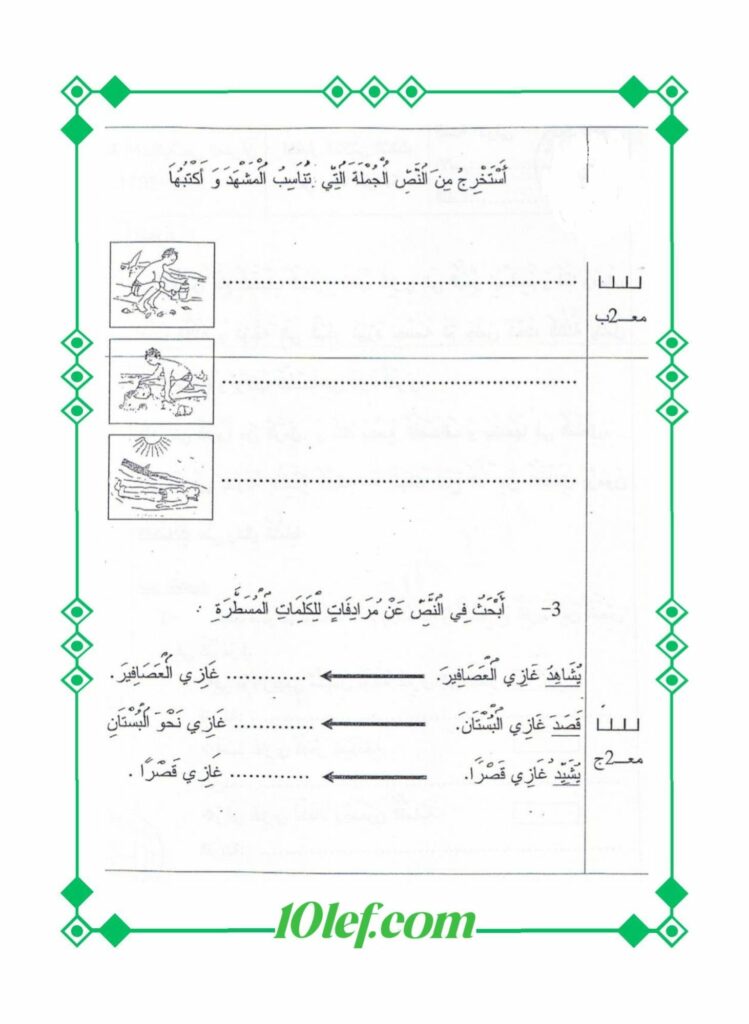 أَسْتَخْرِجُ مِنَ النَّصِّ الْجُمْلَةَ الَّتِي تُنَاسِبُ الْمَشْهَدَ وَ أَكْتُبُهَا
...............................................
معـ2ب
...............................................
...............................................
3- أَبْحَثُ فِي النَّصِّ عَنْ مُرَادِفَاتٍ لِلْكَلِمَاتِ الْمُسَطَّرَةِ :
يُشَاهِدُ غَازِي الْعَصَافِيرَ. ← ............ غَازِي الْعَصَافِيرَ.
قَصَدَ غَازِي الْبُسْتَانَ. ← ............ غَازِي نَحْوَ الْبُسْتَانِ
معـ2ج
يُشَيِّدُ غَازِي قَصْرًا. ← ............ غَازِي قَصْرًا .
10lef.com